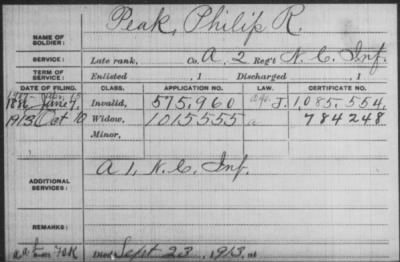 Peak, Philip R.
NAME OF SOLDIER:
SERVICE: Late rank, Co. A, 2 Reg't N. C. Inf.
TERM OF SERVICE: Enlisted , 1 Discharged , 1
DATE OF FILING. CLASS. APPLICATION NO. LAW. CERTIFICATE NO.
1886 June 7, Invalid, 575,960 J. 1,085,554
1913 Oct 10 Widow, 1015555 a 784248
Minor,
ADDITIONAL SERVICES: A 1, N. C. Inf.
REMARKS:
Died Sept 23, 1913, at